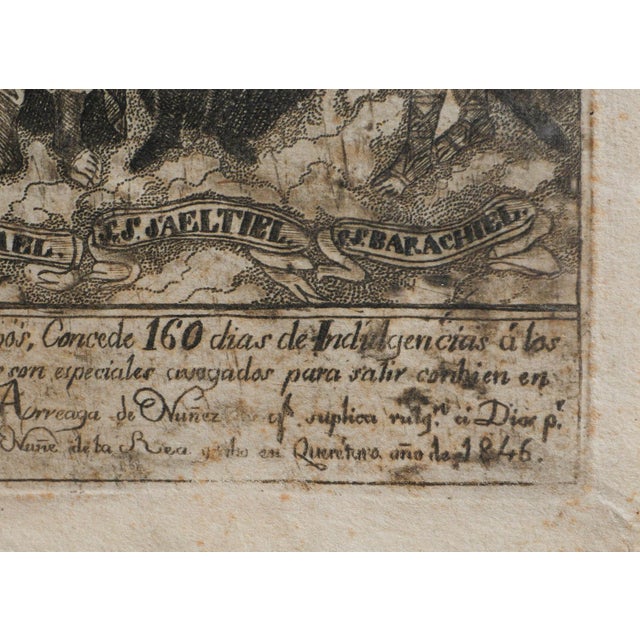 AEL. S.S. SAELTIEL. S.S. BARACHIEL.
Concede 160 dias de Indulgencias á los
son especiales avogados para salir conbien en
Arreaga de Nuñez suplica ruĝ.n á Dios p.r
Nuñe de la Rea en Querétaro año de 1846.